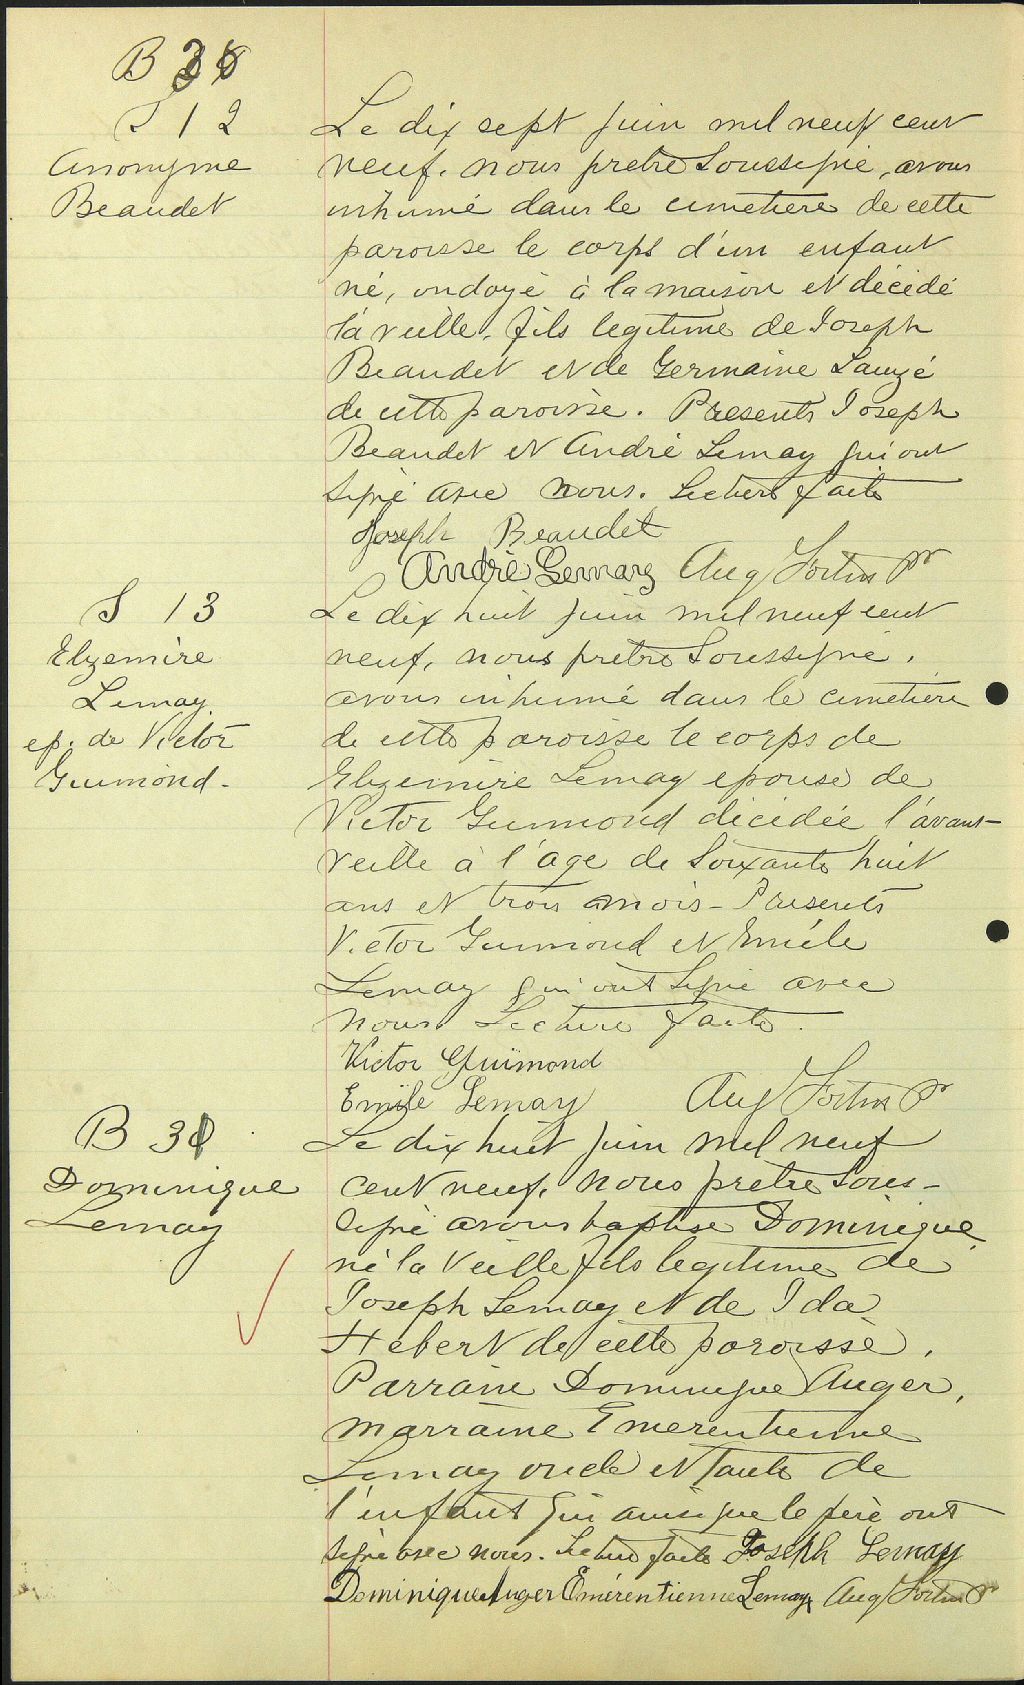 B 36
S 12
Anonyme
Beaudet
Le dix sept juin mil neuf cent
neuf, nous pretre soussigné, avons
inhumé dans le cimetière de cette
paroisse le corps d'un enfant
né, ondoyé à la maison et décédé
la veille, fils legitime de Joseph
Beaudet et de Germaine Lauzé
de cette paroisse. Presents Joseph
Beaudet et André Lemay qui ont
signé avec nous. Lecture faite
Joseph Beaudet
André Lemay Aug Fortin Ptr
S 13
Elzemire
Lemay
ep. de Victor
Guimond.
Le dix huit juin mil neuf cent
neuf, nous pretre soussigné,
avons inhumé dans le cimetière
de cette paroisse le corps de
Elzemire Lemay epouse de
Victor Guimond décédée l'avant-
veille à l'age de soixante huit
ans et trois mois - Presents
Victor Guimond et Emile
Lemay qui ont signé avec
nous Lecture faite.
Victor Guimond
Emile Lemay Aug Fortin Ptr
B 31
Dominique
Lemay
Le dix huit juin mil neuf
cent neuf, nous pretre sous-
signé avons baptisé Dominique
né la veille fils legitime de
Joseph Lemay et de Ida
Hebert de cette paroisse.
Parrain Dominique Auger,
marraine Emerentienne
Lemay oncle et tante de
l'enfant qui ainsi que le père ont
signé avec nous. Lecture faite Joseph Lemay
Dominique Auger Émérentienne Lemay Aug Fortin Ptr